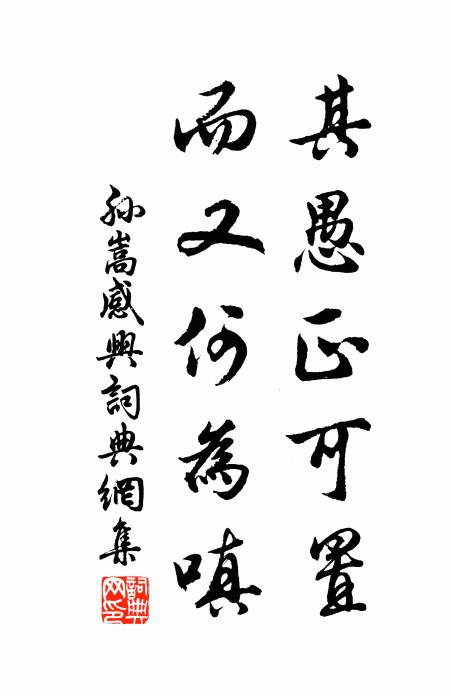 其愚正可置
而又何為嗔
孫嵩感興詞典網集
詞典网印